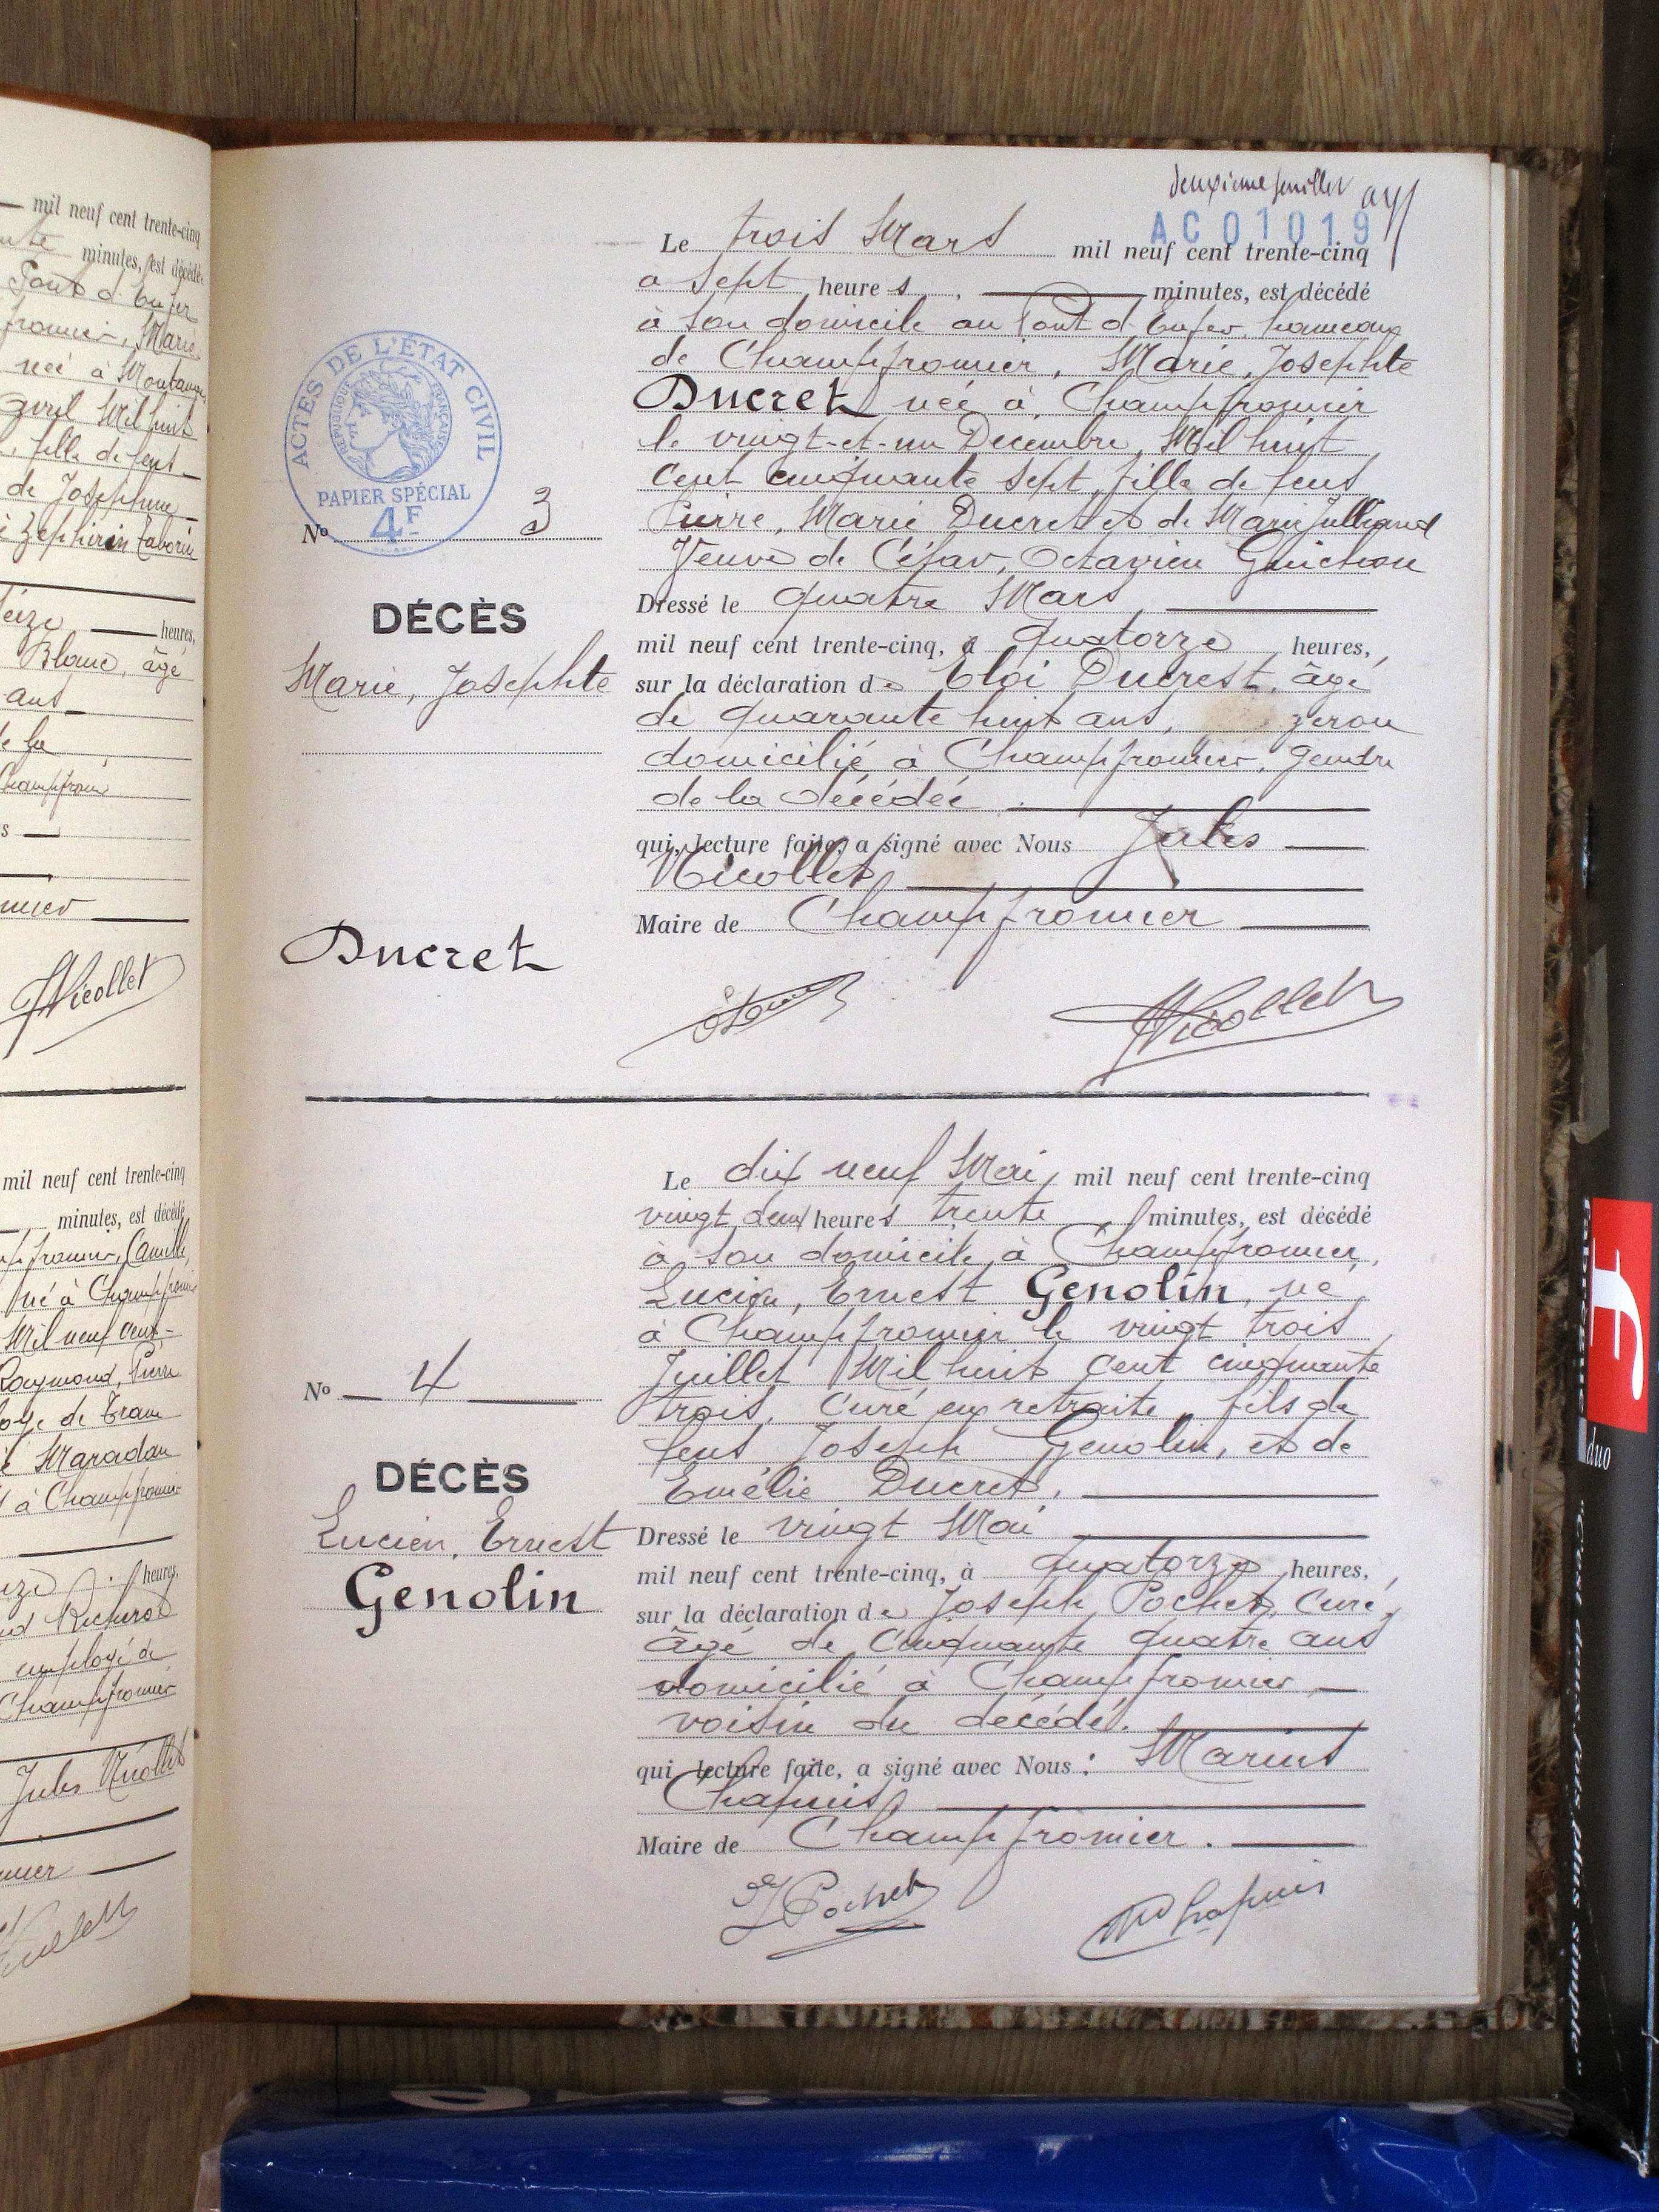 mil neuf cent trente-cinq
minutes, est décédé
née à
avril Mil huit
fille de feu
de Joséphine
Zéphirin Tavorin
heures,
Blanc, âgé
ans
de la
Jules Nicollet
JNicollet
mil neuf cent trente-cinq
minutes, est décédé
Camille
né à Champfromier
Mil neuf cent
Raymond, Pierre
de Tram
Maradan
à Champfromier
heures,
employé de
Champfromier
Jules Nicollet
deuxième feuillet
AC 01019
Le trois Mars mil neuf cent trente-cinq
a Sept heures, minutes, est décédé
à son domicile au Pont d'Enfer, hameau
de Champfromier, Marie, Josephte
Ducret née à Champfromier
le vingt-et-un Décembre Mil huit
cent cinquante sept, fille de feus
Pierre, Marie Ducret et de Marie Julliand
Veuve de César, Octavien Guichon
Dressé le quatre Mars
mil neuf cent trente-cinq, à quatorze heures,
sur la déclaration de Eloi Ducrest, âgé
de quarante huit ans,
domicilié à Champfromier, gendre
de la décédée.
qui, lecture faite, a signé avec Nous Jules
Nicollet
Maire de Champfromier
JNicollet
ACTES DE L'ÉTAT CIVIL
RÉPUBLIQUE FRANÇAISE
PAPIER SPÉCIAL
4F
No 3
DÉCÈS
Marie, Josephte
Ducret
Le dix neuf Mai mil neuf cent trente-cinq
vingt deux heures trente minutes, est décédé
à son domicile à Champfromier,
Lucien, Ernest Genolin, né
à Champfromier le vingt trois
Juillet Mil huit cent cinquante
trois, Curé en retraite, fils de
feus Joseph Genolin, et de
Emélie Ducret.
Dressé le vingt Mai
mil neuf cent trente-cinq, à quatorze heures,
sur la déclaration de Joseph Pochet, Curé,
âgé de cinquante quatre ans
domicilié à Champfromier
voisin du décédé.
qui, lecture faite, a signé avec Nous : Marius
Chapuis
Maire de Champfromier.
J Pochet
M Chapuis
No 4
DÉCÈS
Lucien, Ernest
Genolin
duo